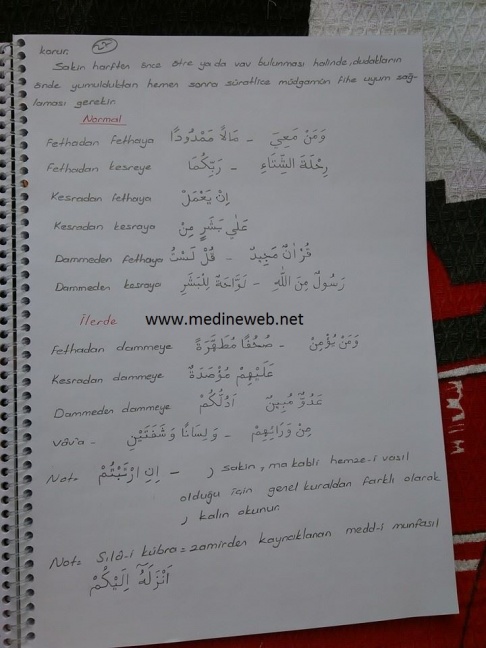 korur.
Sakin harften önce ötre ya da vav bulunması halinde, dudakların
önde yumulduktan hemen sonra süratlice müdgamün fihe uyum sağ-
laması gerekir.
Normal
Fethadan fethaya مَالًا مَمْدُودًا - وَمَنْ مَعِيَ
Fethadan kesreye رَبِّكُمَا - رِحْلَةَ الشِّتَاءِ
Kesradan fethaya اِنْ يَعْمَلْ
Kesradan kesraya عَلٰي بَشَرٍ مِنْ
Dammeden fethaya قُلْ لَسْتُ - قُرْاٰنٌ مَجِيدٌ
Dammeden kesraya لَوَّاحَةٌ لِلْبَشَرِ - رَسُولٌ مِنَ اللّٰهِ
İlerde
www.medineweb.net
Fethadan dammeye صُحُفًا مُطَهَّرَةً - وَمَنْ يُؤْمِنْ
Kesradan dammeye عَلَيْهِمْ مُؤْصَدَةٌ
Dammeden dammeye اَدُلُّكُمْ عَدُوٌّ مُبِينٌ
Vâv'a - وَلِسَانًا وَشَفَتَيْنِ - مِنْ وَرَائِهِمْ
Not= اِنِ ارْتَبْتُمْ - ر sakin, makabli hemze-i vasıl
olduğu için genel kuraldan farklı olarak
ر kalın okunur.
Not= Sıla-i kübra = zamirden kaynaklanan medd-i munfasıl
اَنْزَلَهُٓ اِلَيْكُمْ